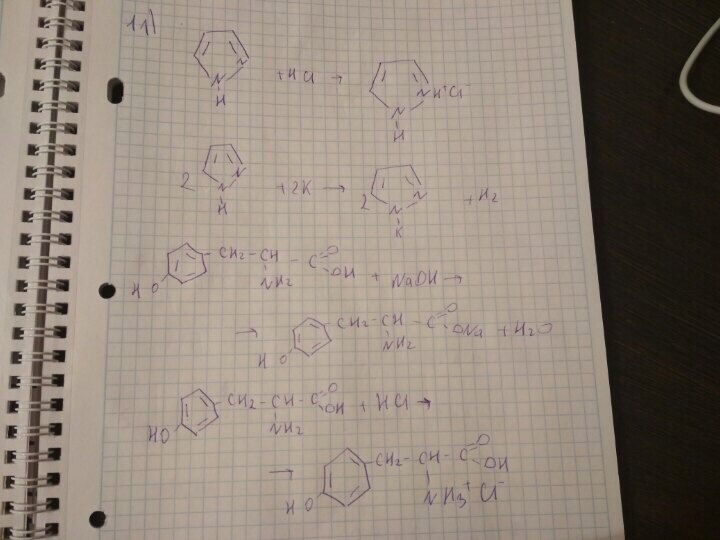 11)
N N H + HCl → N N H⁺Cl⁻ H
2 N N H + 2K → 2 N N K + H₂
HO CH₂ – CH – C O OH NH₂ + NaOH →
→ HO CH₂ – CH – C O ONa NH₂ + H₂O
HO CH₂ – CH – C O OH NH₂ + HCl →
→ HO CH₂ – CH – C O OH NH₃⁺ Cl⁻